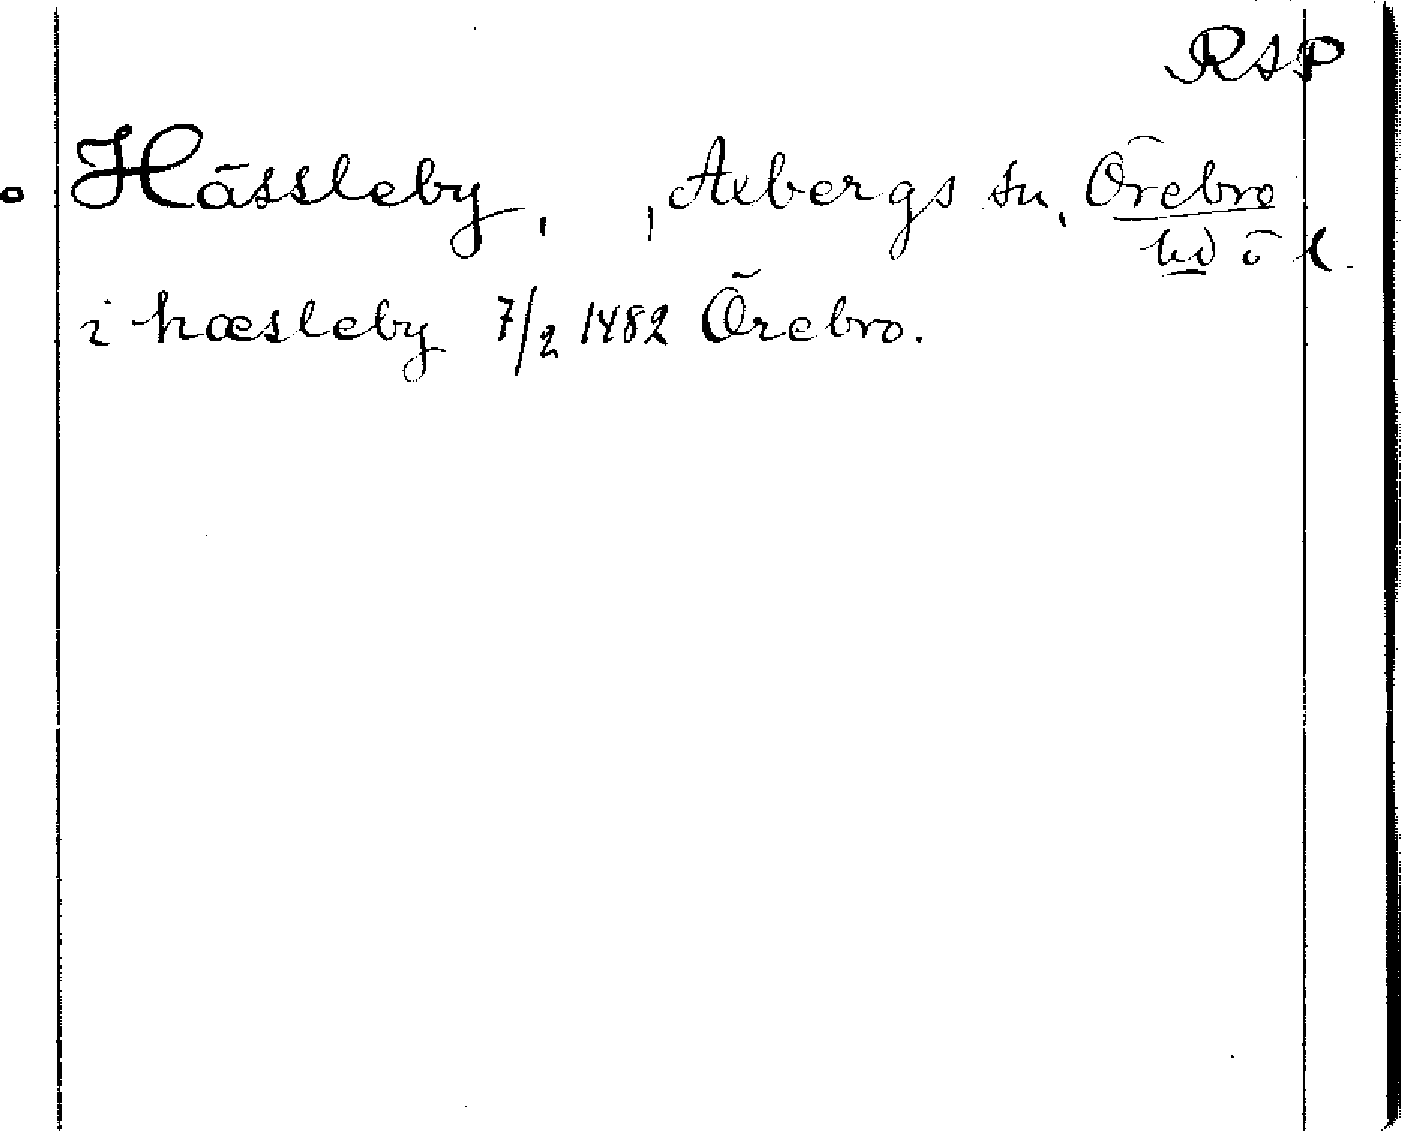 RAP
Hässleby, , Axbergs sn, Örebro
hd ö l.
i hæsleby 7/2 1482 Örebro.